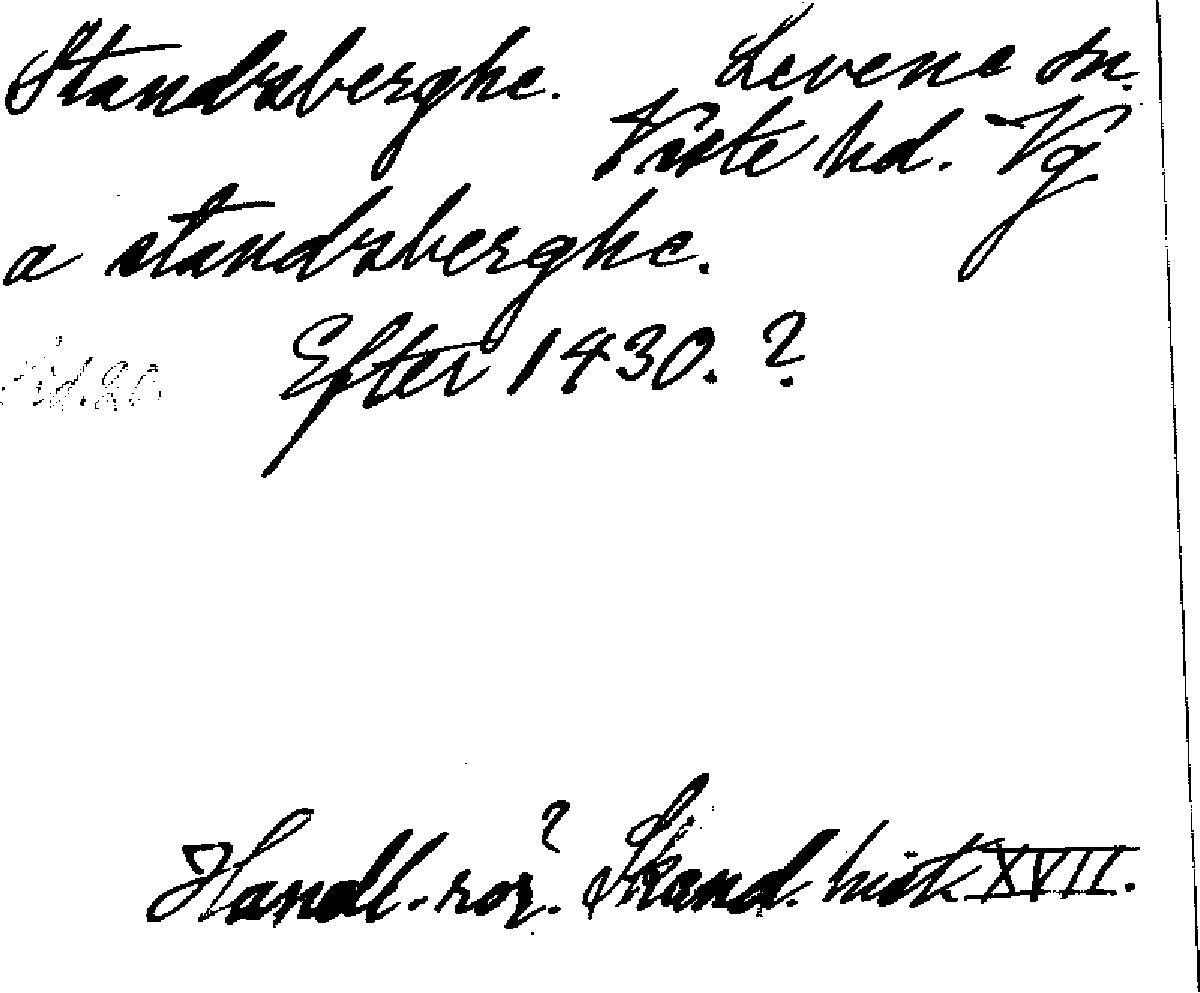 Standsberghe. Levene sn.
Viste hd. Vg
a standsberghe.
Efter 1430. ?
Sid. 20.
Handl. rör. ? Skand. hist. XVII.